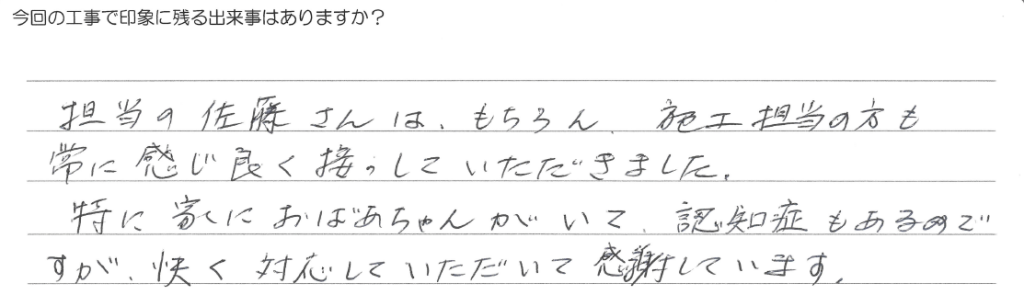 今回の工事で印象に残る出来事はありますか？
担当の佐藤さんは、もちろん、施工担当の方も
常に感じ良く接っしていただきました。
特に家におばあちゃんがいて、認知症もあるので
すが、快く対応していただいて感謝しています。